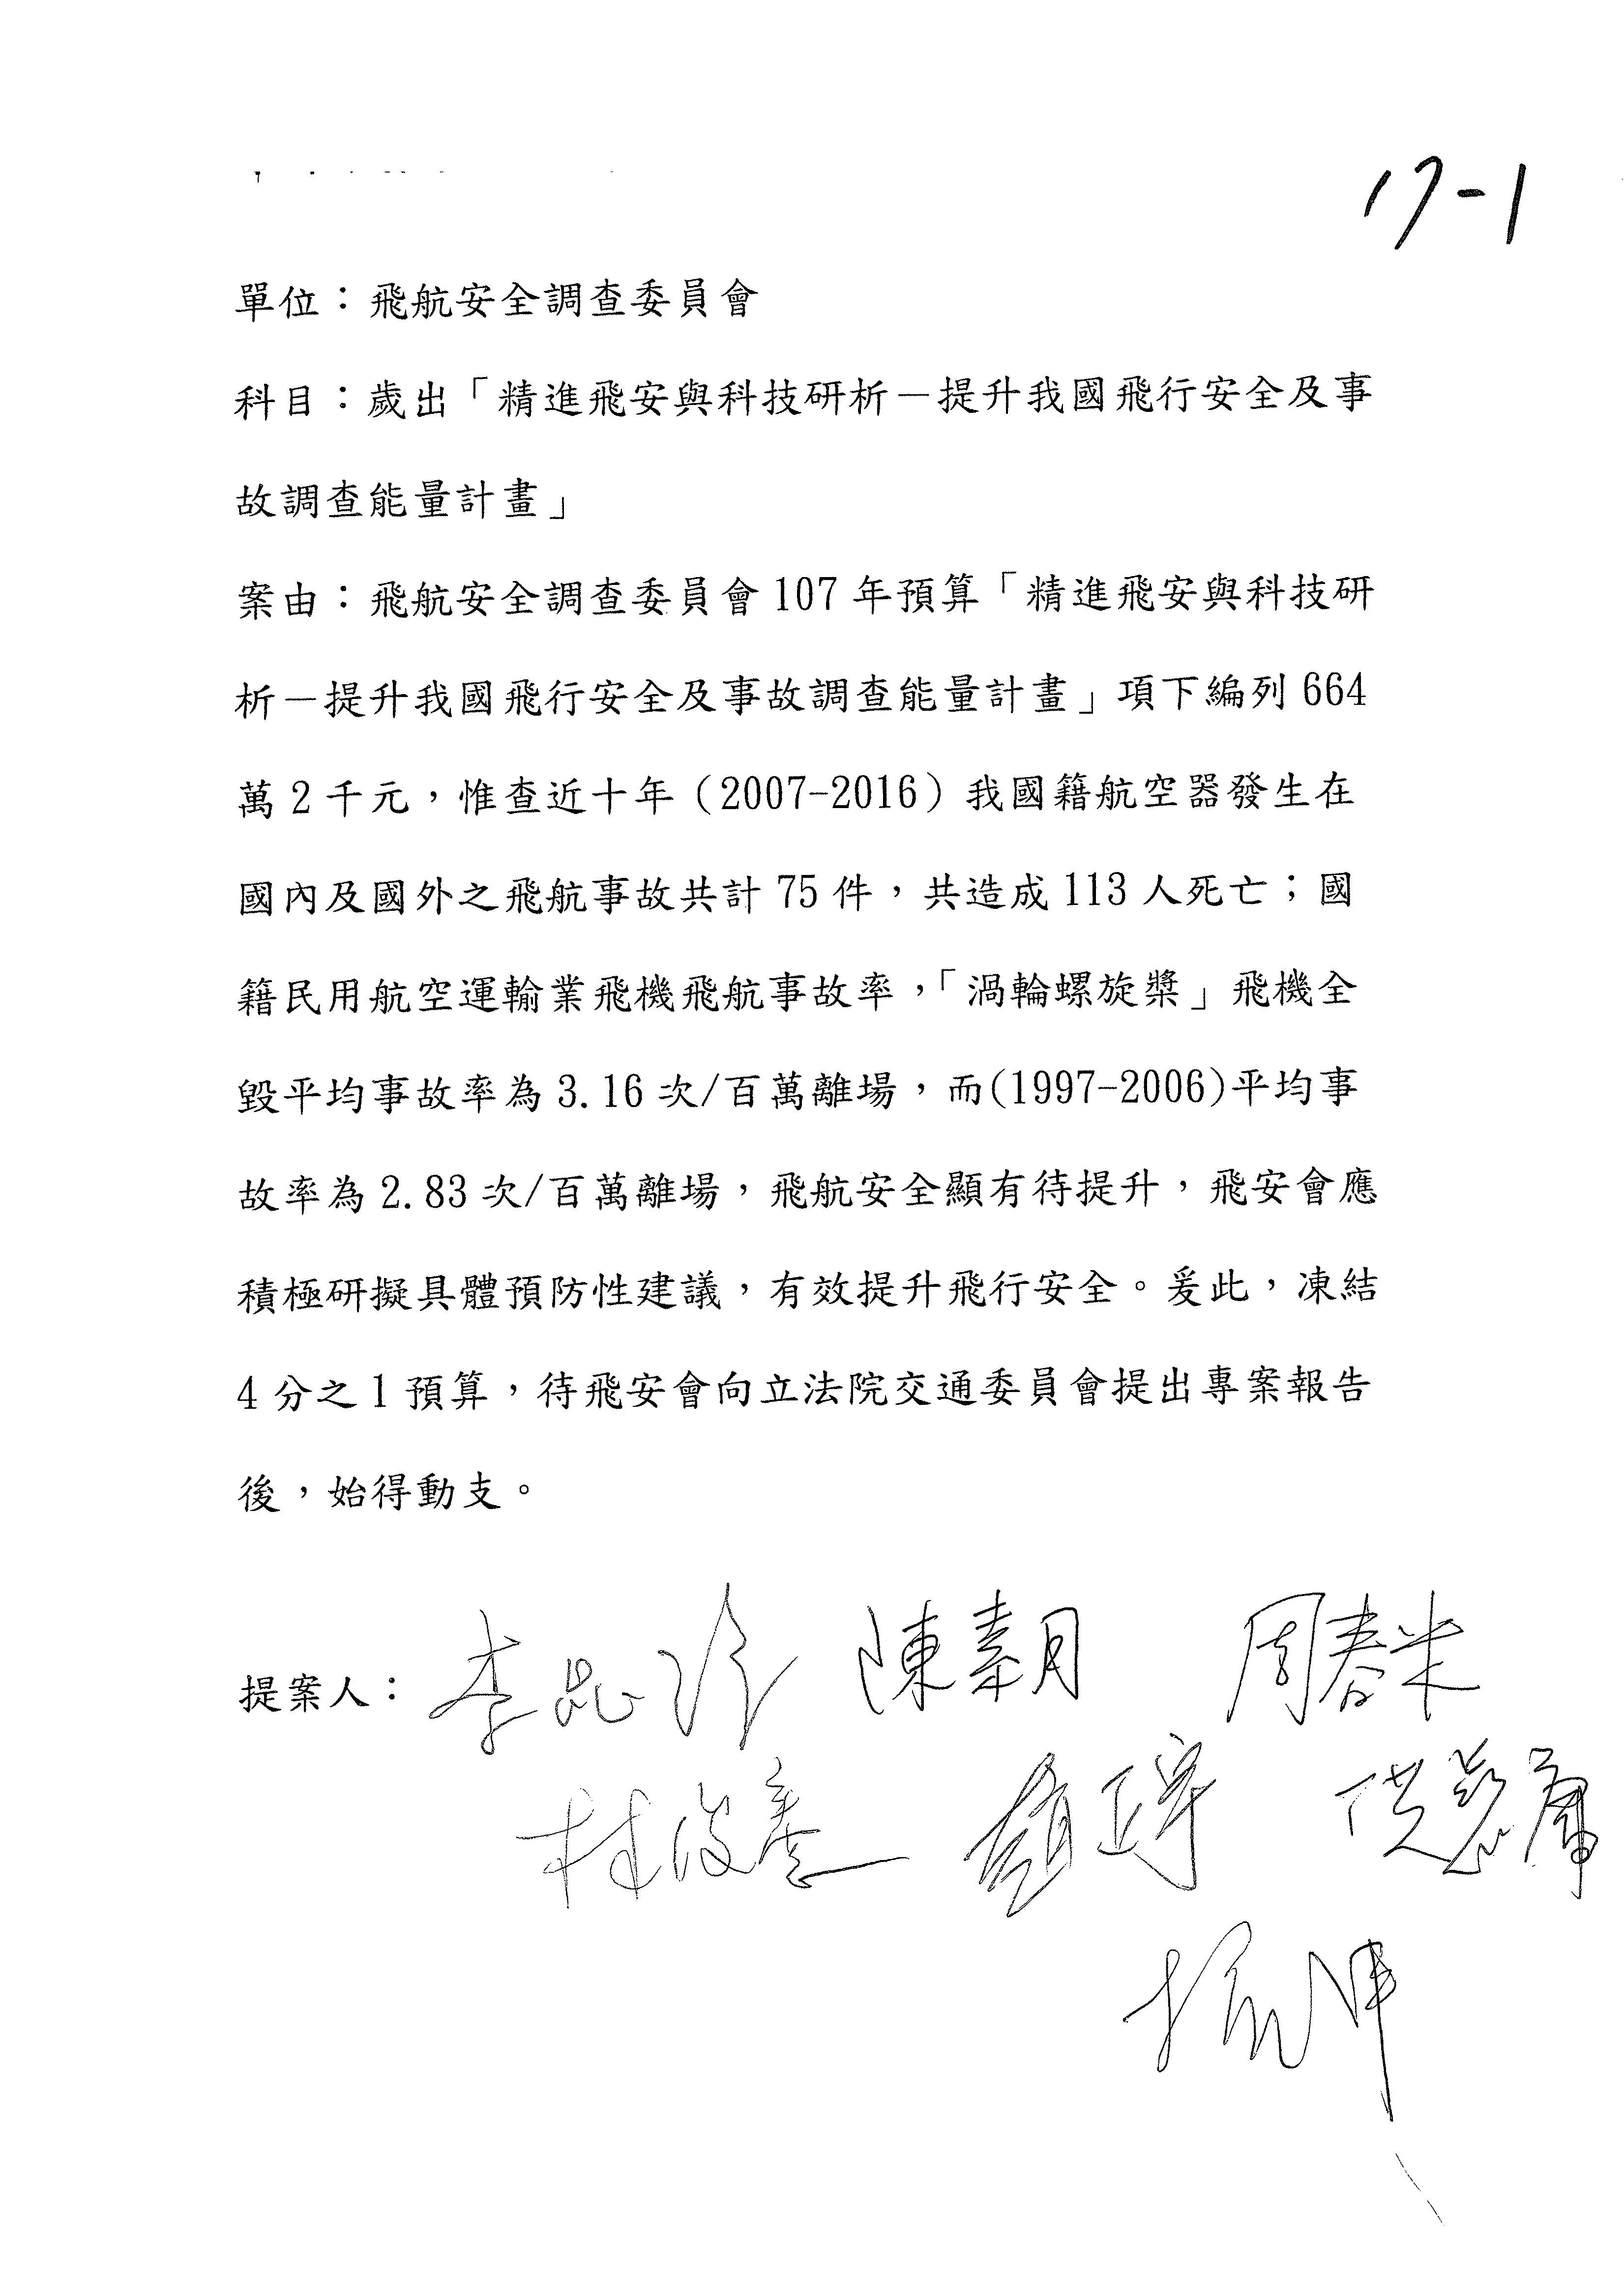 17-1
單位：飛航安全調查委員會
科目：歲出「精進飛安與科技研析－提升我國飛行安全及事
故調查能量計畫」
案由：飛航安全調查委員會 107 年預算「精進飛安與科技研
析－提升我國飛行安全及事故調查能量計畫」項下編列 664
萬 2 千元，惟查近十年（2007-2016）我國籍航空器發生在
國內及國外之飛航事故共計 75 件，共造成 113 人死亡；國
籍民用航空運輸業飛機飛航事故率，「渦輪螺旋槳」飛機全
毀平均事故率為 3.16 次/百萬離場，而(1997-2006)平均事
故率為 2.83 次/百萬離場，飛航安全顯有待提升，飛安會應
積極研擬具體預防性建議，有效提升飛行安全。爰此，凍結
4 分之 1 預算，待飛安會向立法院交通委員會提出專案報告
後，始得動支。
提案人： 陳素月 周春米
林俊憲